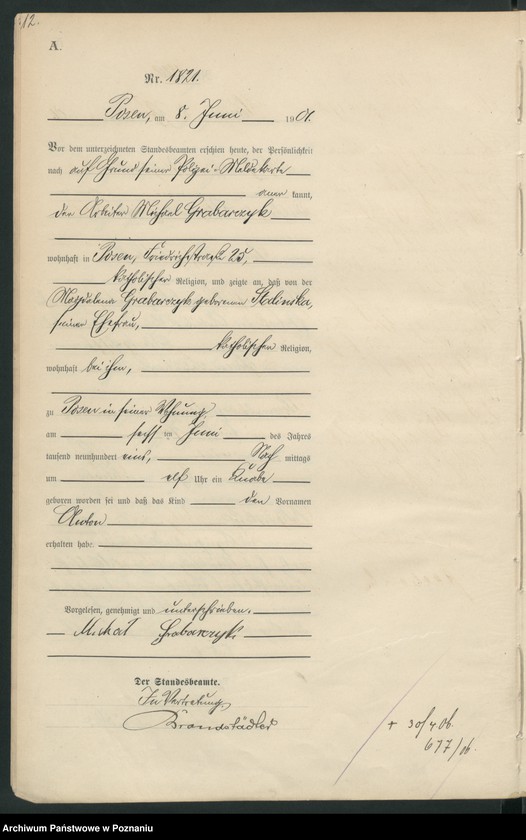 12.
A.
Nr. 1821.
Posen, am 8. Juni 1901.
Vor dem unterzeichneten Standesbeamten erschien heute, der Persönlichkeit
nach auf Grund seiner Polizei-Meldekarte
aner kannt,
der Arbeiter Michael Grabarczyk
wohnhaft in Posen, Friedrichstraße 25,
katholischer Religion, und zeigte an, daß von der
Magdalena Grabarczyk geborenen
seiner Ehefrau,
katholischer Religion,
wohnhaft bei ihm,
zu Posen in seiner Wohnung
am sechs ten Juni des Jahres
tausend neunhundert eins, Nach mittags
um elf Uhr ein Knabe
geboren worden sei und daß das Kind den Vornamen
Anton
erhalten habe.
Vorgelesen, genehmigt und unterschrieben.
Michał Grabarczyk
Der Standesbeamte.
In Vertretung
Brandstädter
+ 30/4 06.
677/06.
Archiwum Państwowe w Poznaniu